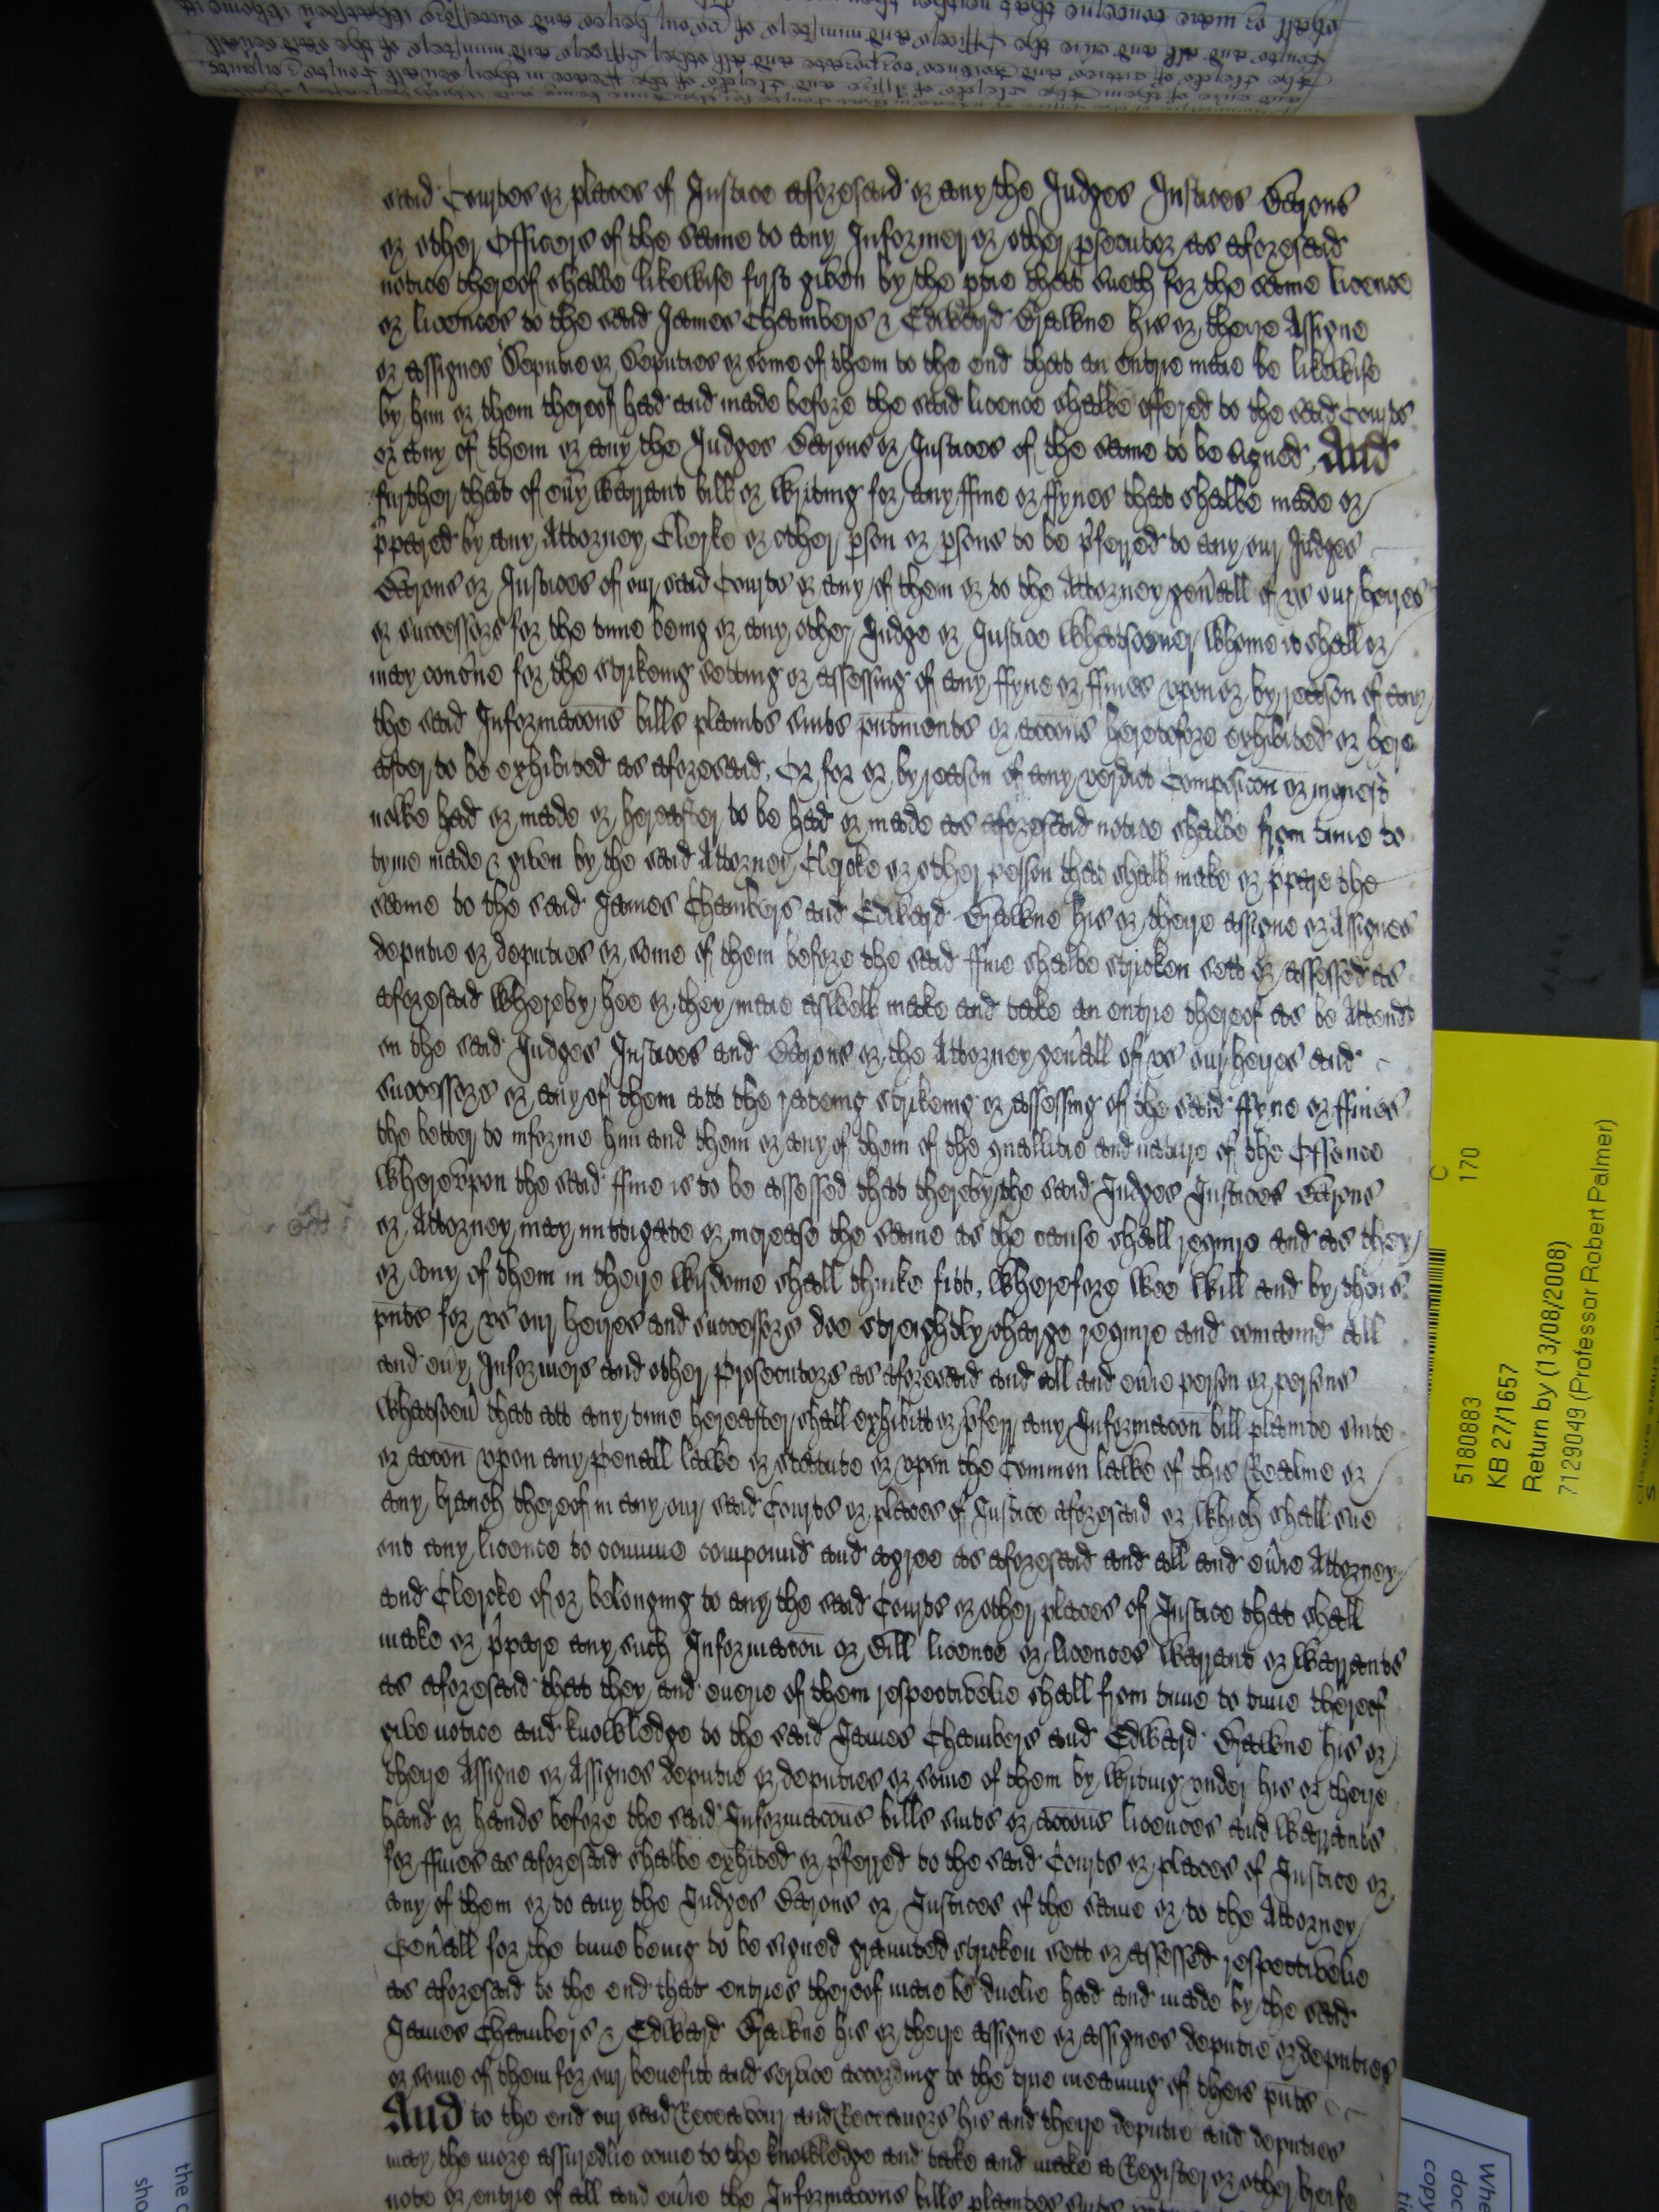 said Courtes or places of Justice aforesaid or any the Judges Justices Barons
or other Officers of the same to any Informer or other psecutor as aforesaid
notice thereof shalbe likewise first given by the ptie that sueth for the same licence
or licences to the said James Chambers & Edward Brawne his or theire Assigne
or assignes Deputie or Deputies or some of them to the end that an entrie maie be likewise
by him or them thereof had and made before the said licence shalbe offered to the said Courts
or any of them or any the Judges Barons or Justices of the same to be signed, And
further that of ev'y warrant bill or writing for any ffine or ffynes that shalbe made or
p'pared by any Attorney, Clerke or other pson or psons to be p'ferred to any our Judges
Barons or Justices of our said Courts or any of them or to the Attorney gen'all of vs our heires
or successors for the time being or any other Judge or Justice whatsoeuer whome it shall or
may conc'ne for the strikeing setting or assessing of any ffyne or ffines vpon or by reason of any
the said Informacons bills plaints suits p'ntments or accons heretofore exhibited or here
after to be exhibited as aforesaid, Or for or by reason of any verdict Composicon or inquest
nowe had or made or hereafter to be had or made as aforesaid notice shalbe from time to
tyme made & given by the said Attorney Clerke or other person that shall make or p'pare the
same to the said James Chambers and Edward Brawne his or theire assigne or Assignes
deputie or deputies or some of them before the said ffine shalbe striken sett or assessed as
aforesaid whereby hee or they maie aswell make and take an entrie thereof as be Attend
on the said Judges Justices and Barons or the Attorney gen'all of vs our heires and
successors or any of them att the rateing strikeing or assessing of the said ffyne or ffines
the better to informe him and them or any of them of the quallitie and nature of the Offence
wherevpon the said ffine is to be assessed that thereby the said Judges Justices Barons
or Attorney may mittigate or increase the same as the cause shall require and as they
or any of them in theire wisdome shall thinke fitt, Wherefore wee will and by theis
p'nts for vs our heires and successors doe streightly charge require and comaund all
and ev'y Informers and other prosecutors as aforesaid and all and ev'ie person or persons
whatsoeu' that att any time hereafter shall exhibitt or p'ferr any Informacon bill plainte suite
or accon vpon any penall lawe or statute or vpon the Common lawe of this Realme or
any branch thereof in any our said Courts or places of Justice aforesaid or which shall sue
out any licence to comune compound and agree as aforesaid and all and ev'ie Attorney
and Clercke of or belonging to any the said Courts or other places of Justice that shall
make or p'pare any such Informacon or Bill licence or licences warrant or warrants
as aforesaid that they and euerie of them respectivelie shall from time to time thereof
give notice and knowledge to the said James Chambers and Edward Brawne his or
theire Assigne or Assignes deputie or deputies or some of them by writing vnder his or theire
hand or hands before the said Informacons bills suits or accons licences and warrants
for ffines as aforesaid shalbe exhited or p'ferred to the said Courts or places of Justice or
any of them or to any the Judges Barons or Justices of the same or to the Attorney
Gen'all for the time being to be signed graunted striken sett or assessed respectivelie
as aforesaid to the end that entries thereof maie be duelie had and made by the said
James Chambers & Edward Brawne his or theire assigne or assignes deputie or deputies
or some of them for our benefitt and service according to the true meaning of theis p'nts
And to the end our said Receavour and Receauers his and theire deputie and deputies
may the more assuredlie come to the knowledge and take and make a Register or other breife
note or entrie of all and ev'ie the Informacons bills plaintes suites
C
170
5180883
KB 27/1657
Return by (13/08/2008)
7129049 (Professor Robert Palmer)